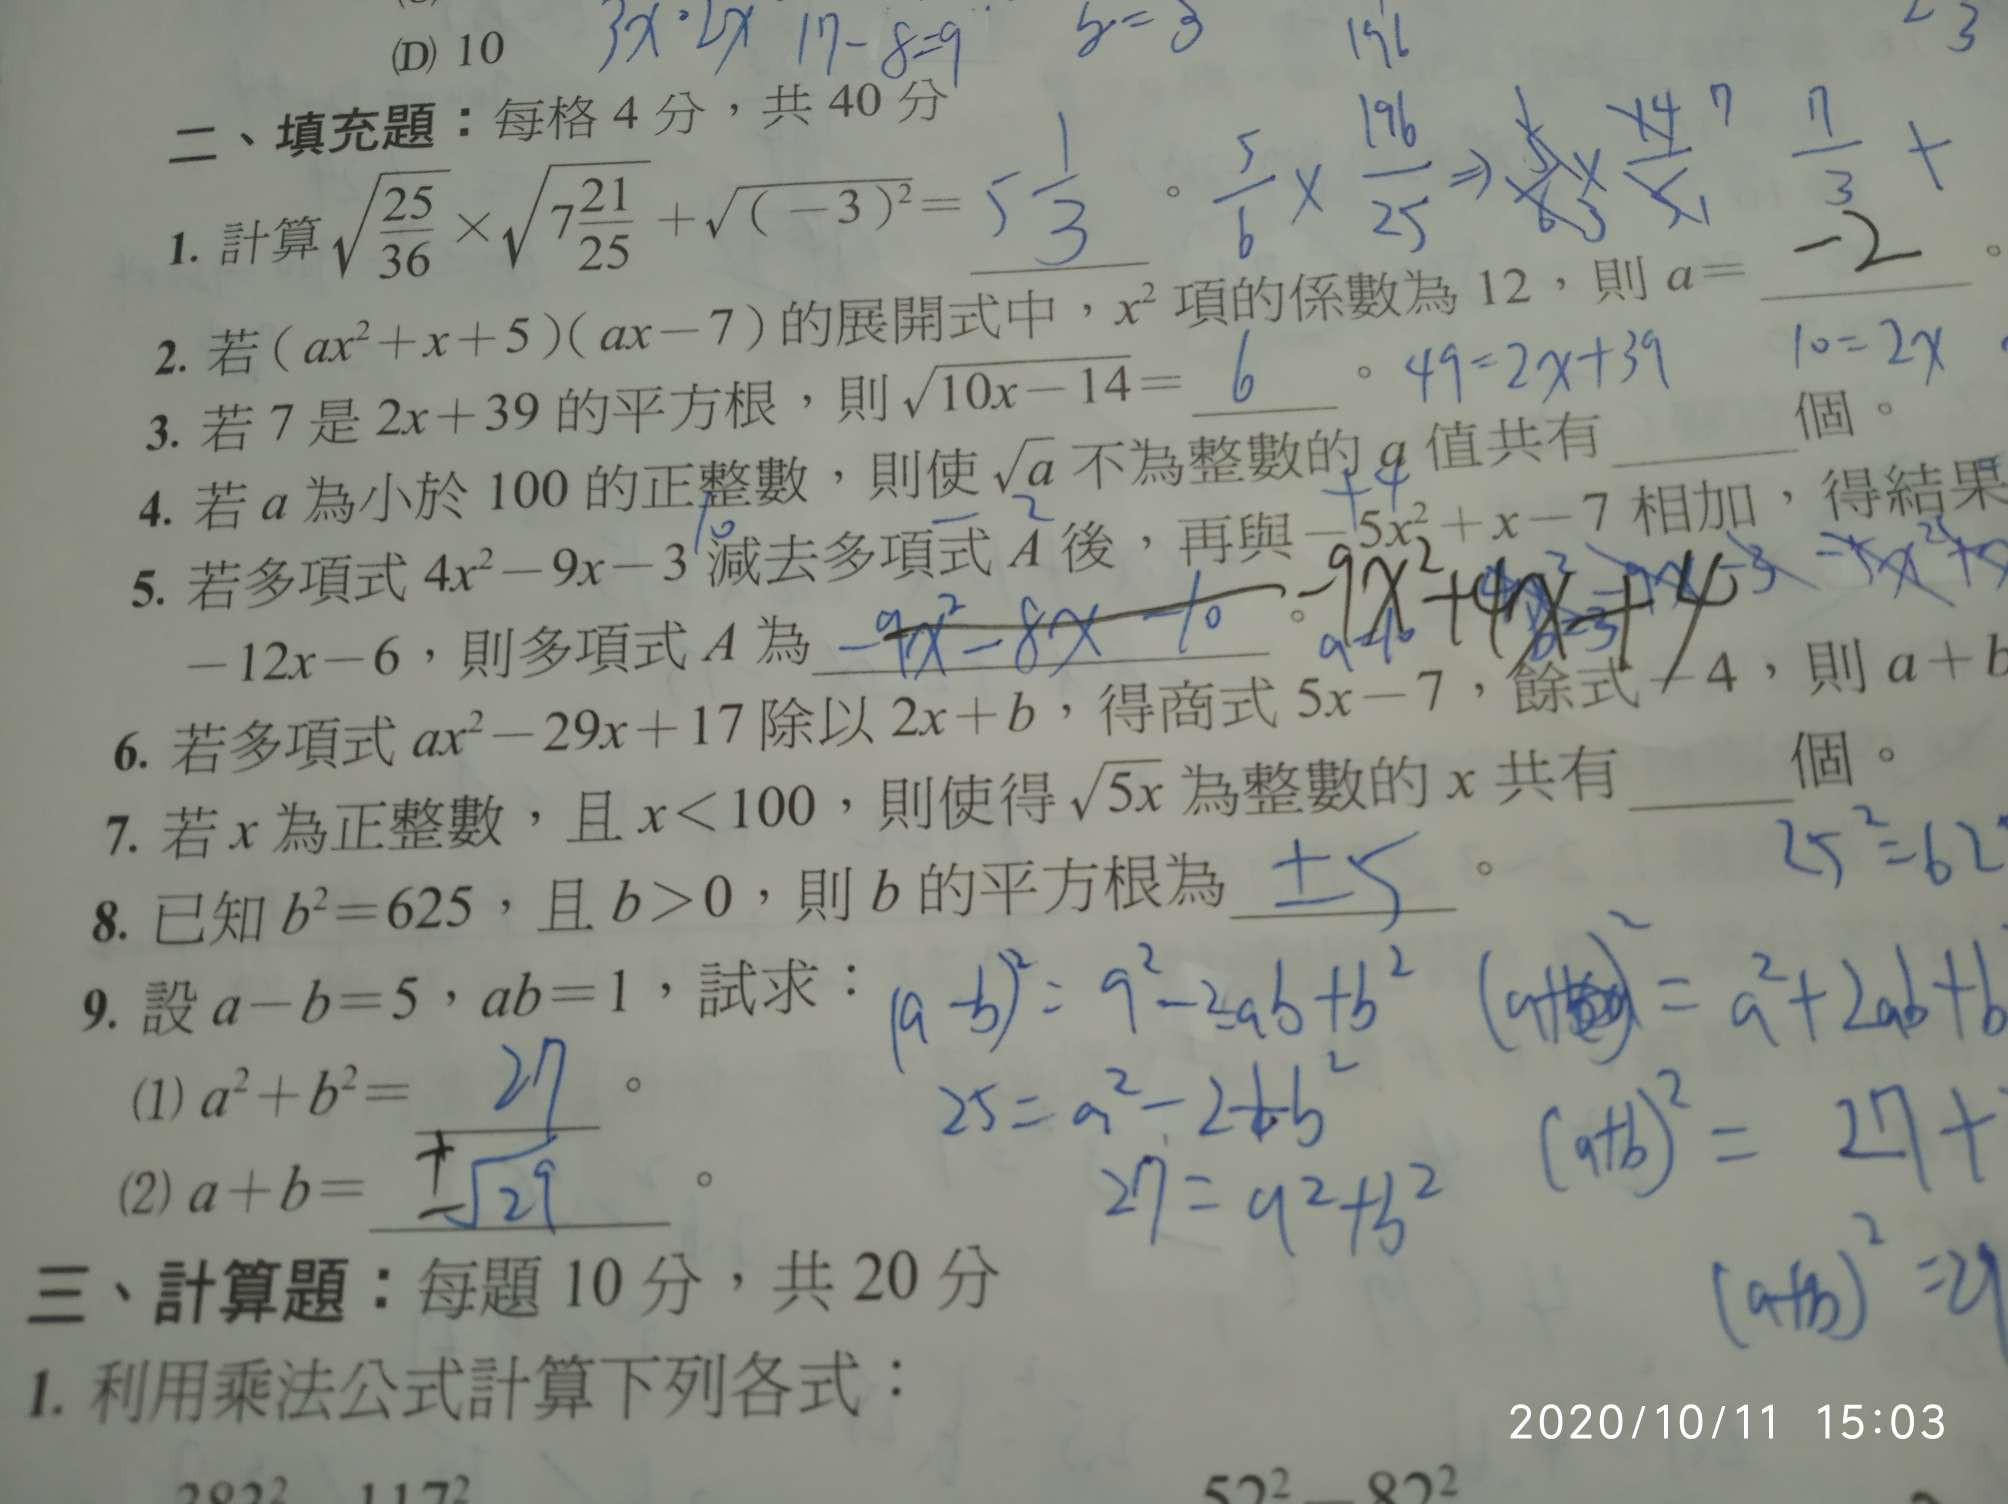 (D) 10 3x·2x 17-8=9 b=3 196
二、填充題：每格 4 分，共 40 分
1. 計算√(25/36)×√(7 21/25)+√((-3)²)= 5 1/3 。 5/6 × 196/25 ⇒ 7/3 +
2. 若(ax²+x+5)(ax-7)的展開式中，x² 項的係數為 12，則 a= -2 。
3. 若 7 是 2x+39 的平方根，則√(10x-14)= 6 。 49=2x+39 10=2x
4. 若 a 為小於 100 的正整數，則使√a 不為整數的 a 值共有 個。
5. 若多項式 4x²-9x-3 減去多項式 A 後，再與-5x²+x-7 相加，得結果
-12x-6，則多項式 A 為 -9x²-8x-10 。 -9x²+4x+4
6. 若多項式 ax²-29x+17 除以 2x+b，得商式 5x-7，餘式-4，則 a+b
7. 若 x 為正整數，且 x<100，則使得√5x 為整數的 x 共有 個。
8. 已知 b²=625，且 b>0，則 b 的平方根為 ±5 。 25²=62
9. 設 a-b=5，ab=1，試求： (a-b)²=a²-2ab+b² = a²+2ab+b
(1) a²+b²= 27 。 25=a²-2+b² (a+b)² = 27+
(2) a+b= ±√29 。 27=a²+b²
(a+b)²=29
三、計算題：每題 10 分，共 20 分
1. 利用乘法公式計算下列各式：
2020/10/11 15:03